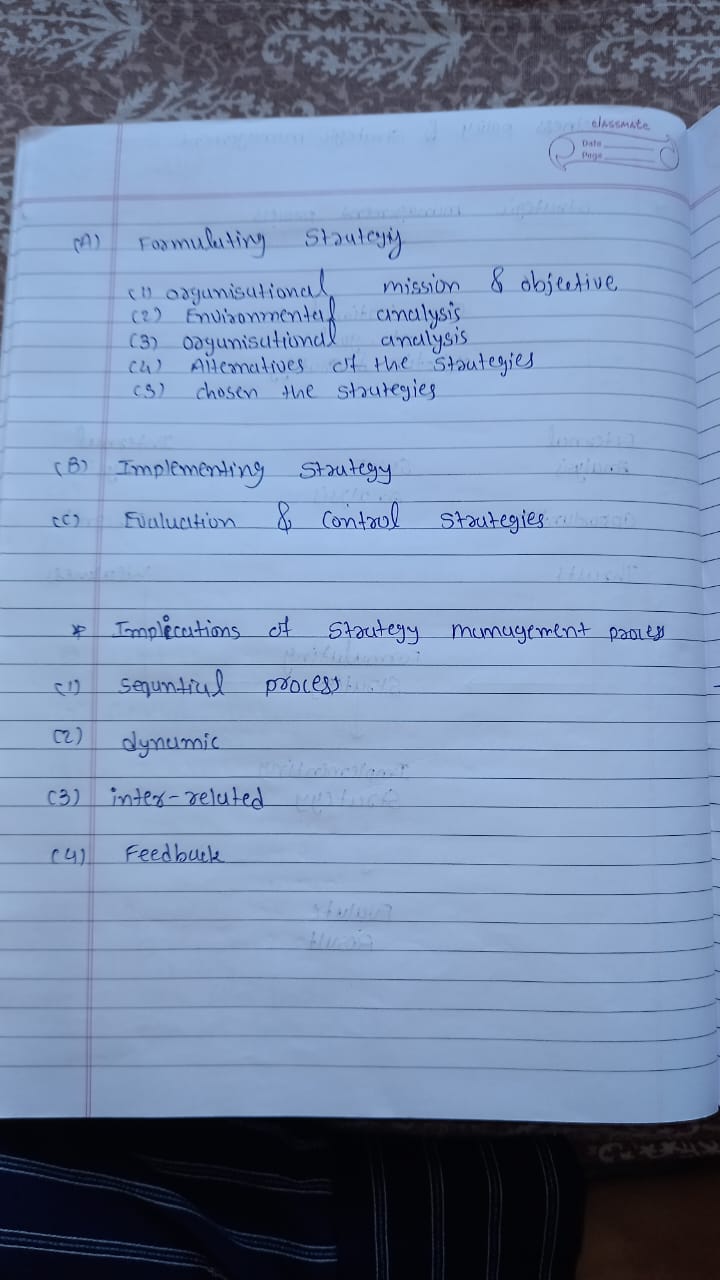 classmate
Date
Page
(A) Formulating Strategy
(1) organisational mission & objective
(2) Environmental analysis
(3) organisational analysis
(4) Alternatives of the strategies
(5) chosen the strategies
(B) Implementing Strategy
(C) Evaluation & Control Strategies
* Implications of Strategy management process
(1) sequntial process
(2) dynamic
(3) inter-related
(4) Feedback